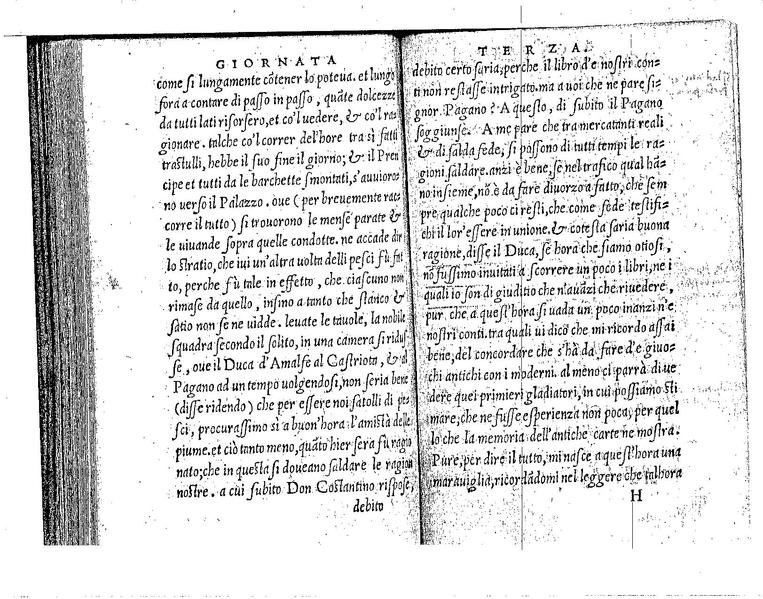 GIORNATA
come si lungamente cōtener lo poteua. et lungo
fora a contare di passo in passo, quāte dolcezze
da tutti lati risorsero, et co'l uedere, & co'l ra=
gionare. talche co'l correr del'hore tra sì fatti
trastulli, hebbe il suo fine il giorno; & il Pren
cipe et tutti da le barchette smontati, s'auuioro=
no uerso il Palazzo. oue (per breuemente rac=
corre il tutto) si trouorono le mense parate &
le uiuande sopra quelle condotte. ne accade dir
lo stratio, che iui un'altra uolta delli pesci fù fat
to, perche fù tale in effetto, che ciascuno non
rimase da quello, insino a tanto che stāco &
satio non se ne uidde. leuate le tauole, la nobile
squadra secondo il solito, in una camera si ridus
se, oue il Duca d'Amalfe al Castriota, & al
Pagano ad un tempo uolgendosi, non seria bene
(disse ridendo) che per essere noi satolli di pe=
sci, procurassimo sì a buon'hora l'amistà delle
piume. et ciò tanto meno, quāto hier sera fù ragio
nato; che in questa si doueano saldare le ragion
nostre. a cui subito Don Costantino rispose,
debito
TERZA.
debito certo saria, perche il libro d'e nostri con=
ti non restasse intrigato. ma a uoi che ne pare si=
gnor Pagano? A questo, di subito il Pagano
soggiunse. A me pare che tra mercatanti reali
& di salda fede, si possono di tutti tempi le ra=
gioni saldare. anzi è bene, se nel trafico qual hā=
no insieme, nō è da fare diuorzo a fatto, che sem
pre qualche poco ci resti, che come fede testifi=
chi il lor'essere in unione. & cotesta saria buona
ragione, disse il Duca, se hora che siamo otiosi,
nō fussimo inuitati a scorrere un poco i libri, ne i
quali io son di giuditio che n'auāzi che riuedere,
pur che a quest'hora si uada un poco inanzi n'e
nostri conti. tra quali ui dico che mi ricordo assai
bene, del concordare che s'hà da fare d'e giuo=
chi antichi con i moderni. al meno ci parrà di ue
dere quei primieri gladiatori, in cui possiamo sti
mare, che ne fusse esperienza non poca, per quel
lo che la memoria dell'antiche carte ne mostra.
Pure, per dire il tutto, mi nasce a quest'hora una
marauiglia, ricordādomi nel leggere che talhora
H